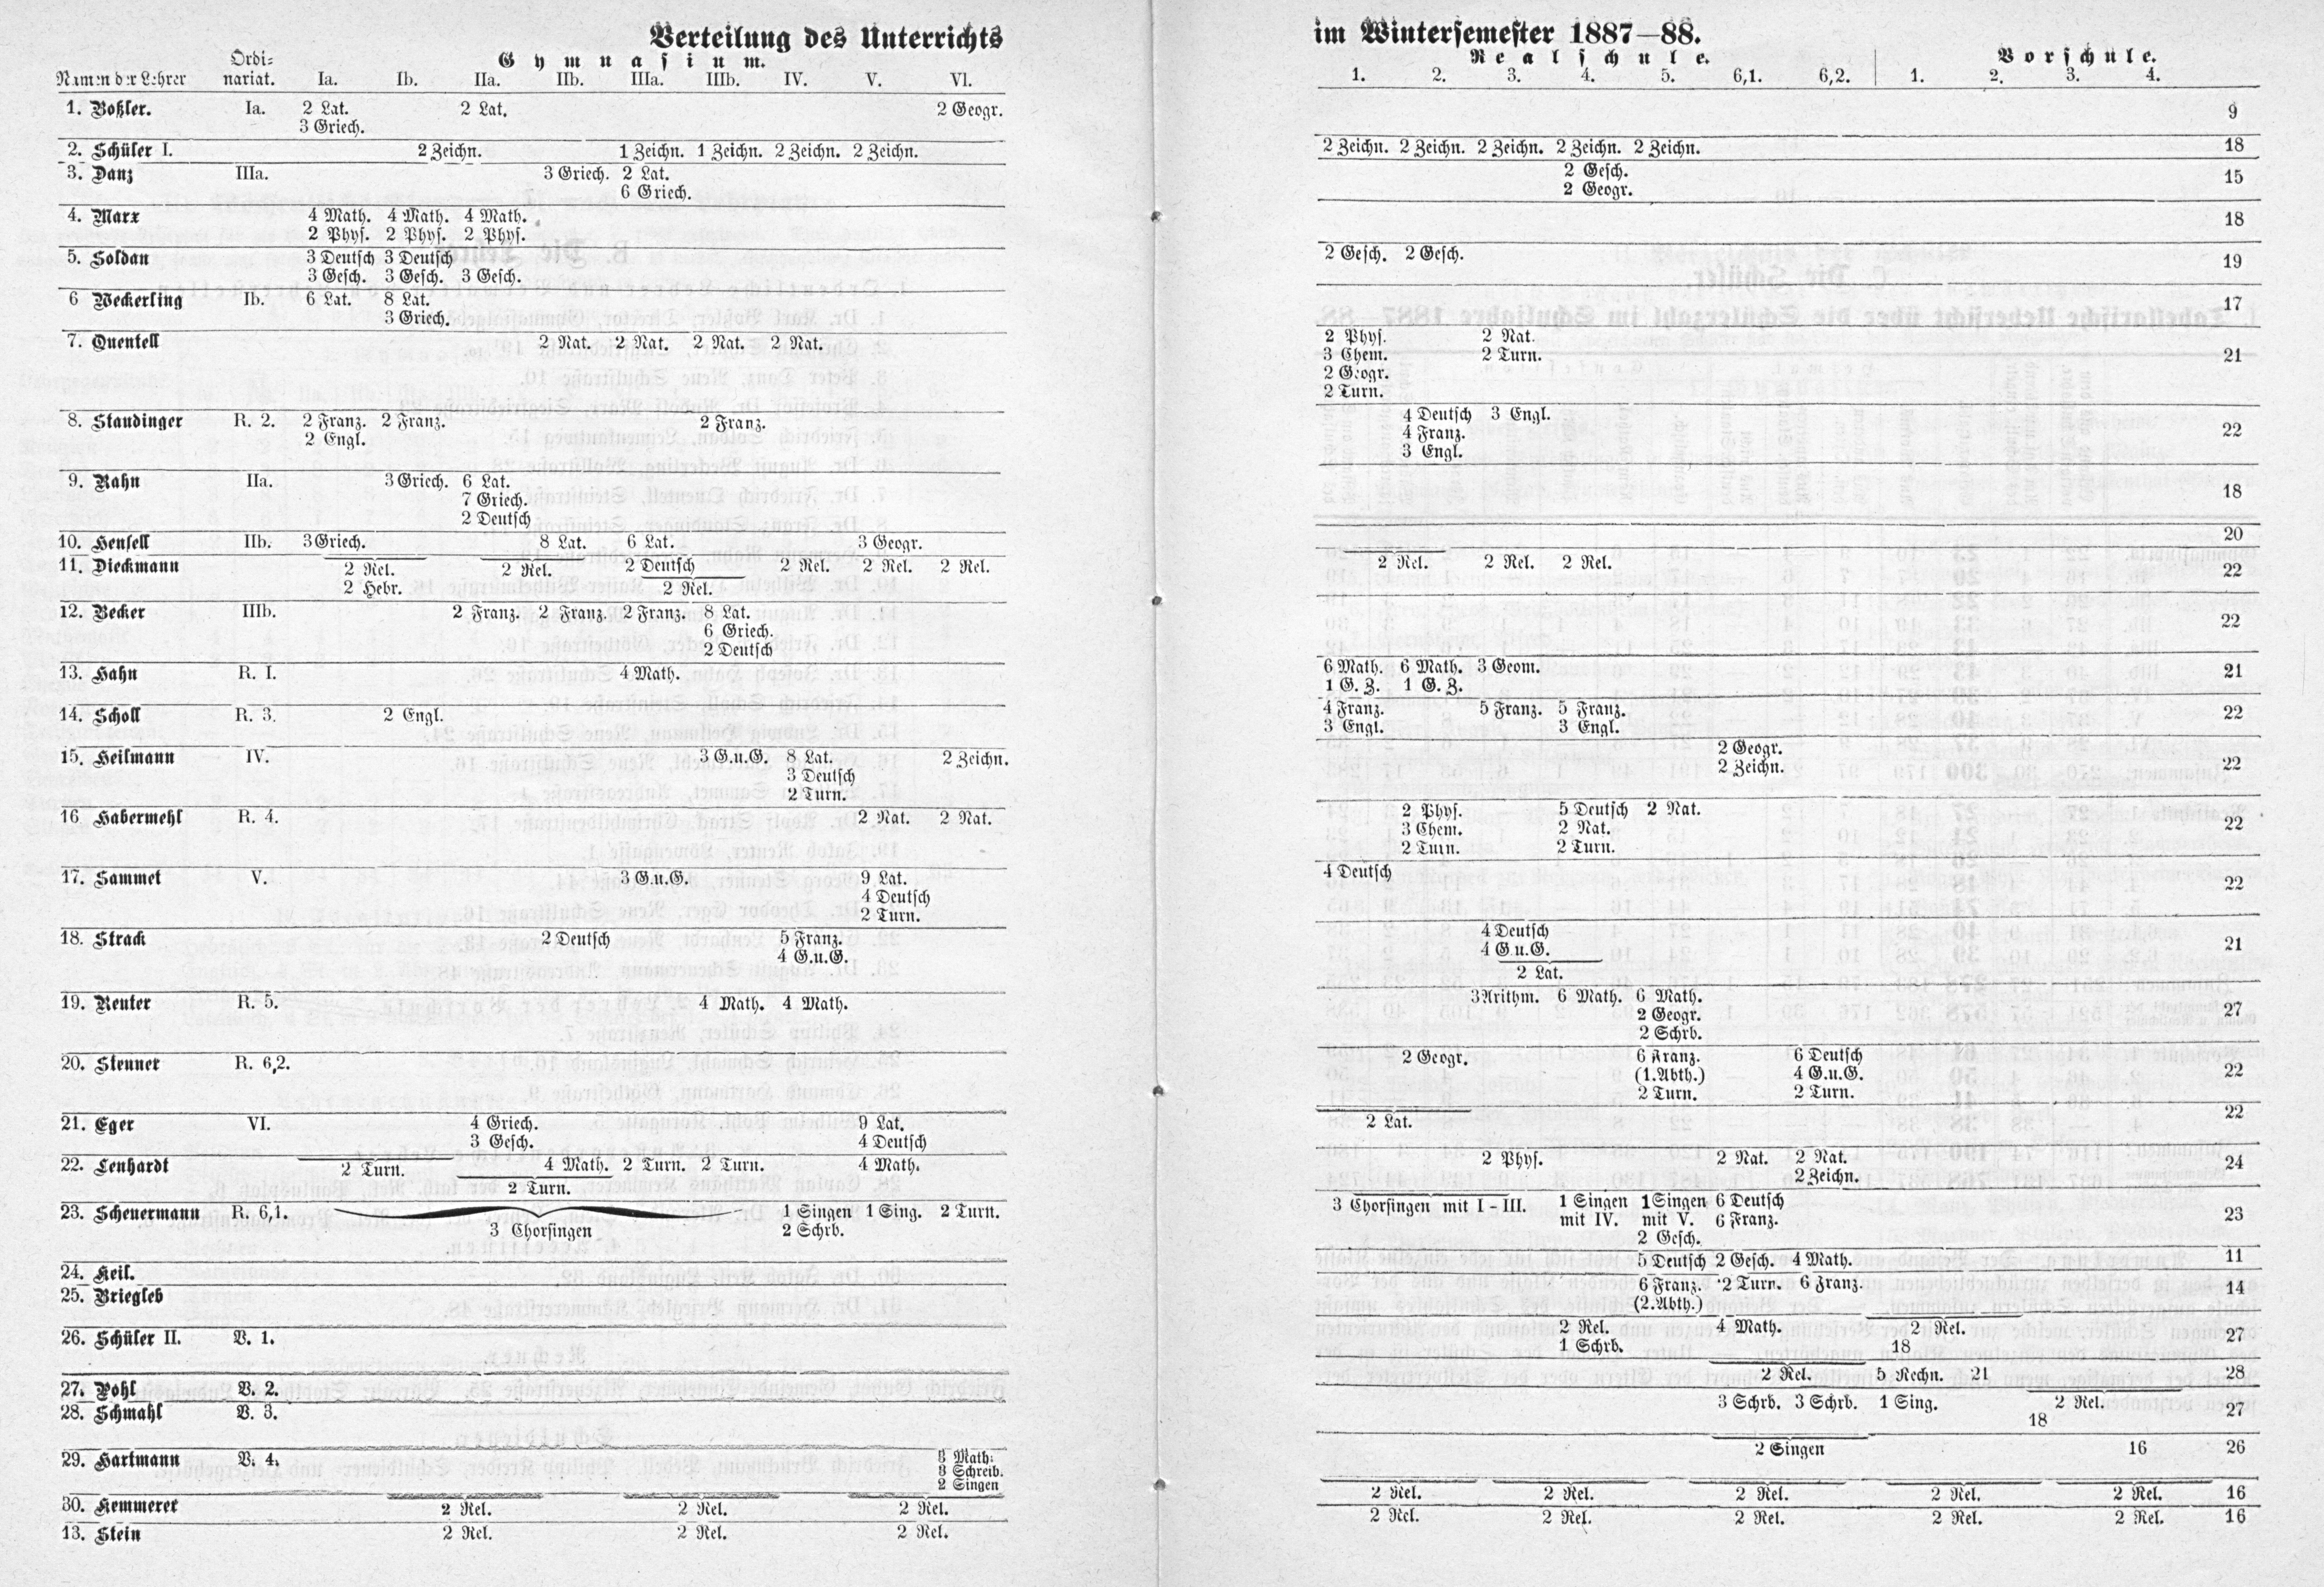 Verteilung des Unterrichts im Wintersemester 1887—88.
Gymnasium. Realschule. Vorschule.
Namen der Lehrer Ordi-
nariat. Ia. Ib. IIa. IIb. IIIa. IIIb. IV. V. VI. 1. 2. 3. 4. 5. 6,1. 6,2. 1. 2. 3. 4.
1. Boßler. Ia. 2 Lat. 2 Lat. 2 Geogr. 9
3 Griech.
2. Schüler I. 2 Zeichn. 1 Zeichn. 1 Zeichn. 2 Zeichn. 2 Zeichn. 2 Zeichn. 2 Zeichn. 2 Zeichn. 2 Zeichn. 2 Zeichn. 18
3. Danz IIIa. 3 Griech. 2 Lat. 2 Gesch. 15
6 Griech. 2 Geogr.
4. Marx 4 Math. 4 Math. 4 Math. 18
2 Phys. 2 Phys. 2 Phys.
5. Soldan 3 Deutsch 3 Deutsch 2 Gesch. 2 Gesch. 19
3 Gesch. 3 Gesch. 3 Gesch.
6 Weckerling Ib. 6 Lat. 8 Lat. 17
3 Griech.
7. Quentell 2 Nat. 2 Nat. 2 Nat. 2 Nat. 2 Phys. 2 Nat. 21
3 Chem. 2 Turn.
2 Geogr.
2 Turn.
8. Staudinger R. 2. 2 Franz. 2 Franz. 2 Franz. 4 Deutsch 3 Engl. 22
2 Engl. 4 Franz.
3 Engl.
9. Rahn IIa. 3 Griech. 6 Lat. 18
7 Griech.
2 Deutsch
10. Hensell IIb. 3 Griech. 8 Lat. 6 Lat. 3 Geogr. 20
11. Dieckmann 2 Rel. 2 Rel. 2 Deutsch 2 Rel. 2 Rel. 2 Rel. 2 Rel. 2 Rel. 2 Rel. 22
2 Hebr. 2 Rel.
12. Becker IIIb. 2 Franz. 2 Franz. 2 Franz. 8 Lat. 22
6 Griech.
2 Deutsch
13. Hahn R. I. 4 Math. 6 Math. 6 Math. 3 Geom. 21
1 G. Z. 1 G. Z.
14. Scholl R. 3. 2 Engl. 4 Franz. 5 Franz. 5 Franz. 22
3 Engl. 3 Engl.
15. Heilmann IV. 3 G.u.G. 8 Lat. 2 Zeichn. 2 Geogr. 22
3 Deutsch 2 Zeichn.
2 Turn.
16 Habermehl R. 4. 2 Nat. 2 Nat. 2 Phys. 5 Deutsch 2 Nat. 22
3 Chem. 2 Nat.
2 Turn. 2 Turn.
17. Sammet V. 3 G.u.G. 9 Lat. 4 Deutsch 22
4 Deutsch
2 Turn.
18. Strack 2 Deutsch 5 Franz. 4 Deutsch 21
4 G.u.G. 4 G.u.G.
2 Lat.
19. Reuter R. 5. 4 Math. 4 Math. 3 Arithm. 6 Math. 6 Math. 27
2 Geogr.
2 Schrb.
20. Stenner R. 6,2. 2 Geogr. 6 Franz. 6 Deutsch 22
(1. Abth.) 4 G.u.G.
2 Turn. 2 Turn.
21. Eger VI. 4 Griech. 9 Lat. 2 Lat. 22
3 Gesch. 4 Deutsch
22. Lenhardt 2 Turn. 4 Math. 2 Turn. 2 Turn. 4 Math. 2 Phys. 2 Nat. 2 Nat. 24
2 Turn. 2 Zeichn.
23. Scheuermann R. 6,1. 1 Singen 1 Sing. 2 Turn. 3 Chorsingen mit I - III. 1 Singen 1 Singen 6 Deutsch 23
3 Chorsingen 2 Schrb. mit IV. mit V. 6 Franz.
2 Gesch.
24. Keil. 5 Deutsch 2 Gesch. 4 Math. 11
25. Briegleb 6 Franz. 2 Turn. 6 Franz. 14
(2. Abth.)
26. Schüler II. V. 1. 2 Rel. 4 Math. 2 Rel. 27
1 Schrb. 18
27. Pohl V. 2. 2 Rel. 5 Rechn. 21 28
28. Schmahl V. 3. 3 Schrb. 3 Schrb. 1 Sing. 2 Rel. 27
18
29. Hartmann V. 4. Math. 2 Singen 16 26
Schreib.
2 Singen
30. Kemmerer 2 Rel. 2 Rel. 2 Rel. 2 Rel. 2 Rel. 2 Rel. 2 Rel. 2 Rel. 16
13. Stein 2 Rel. 2 Rel. 2 Rel. 2 Rel. 2 Rel. 2 Rel. 2 Rel. 2 Rel. 16